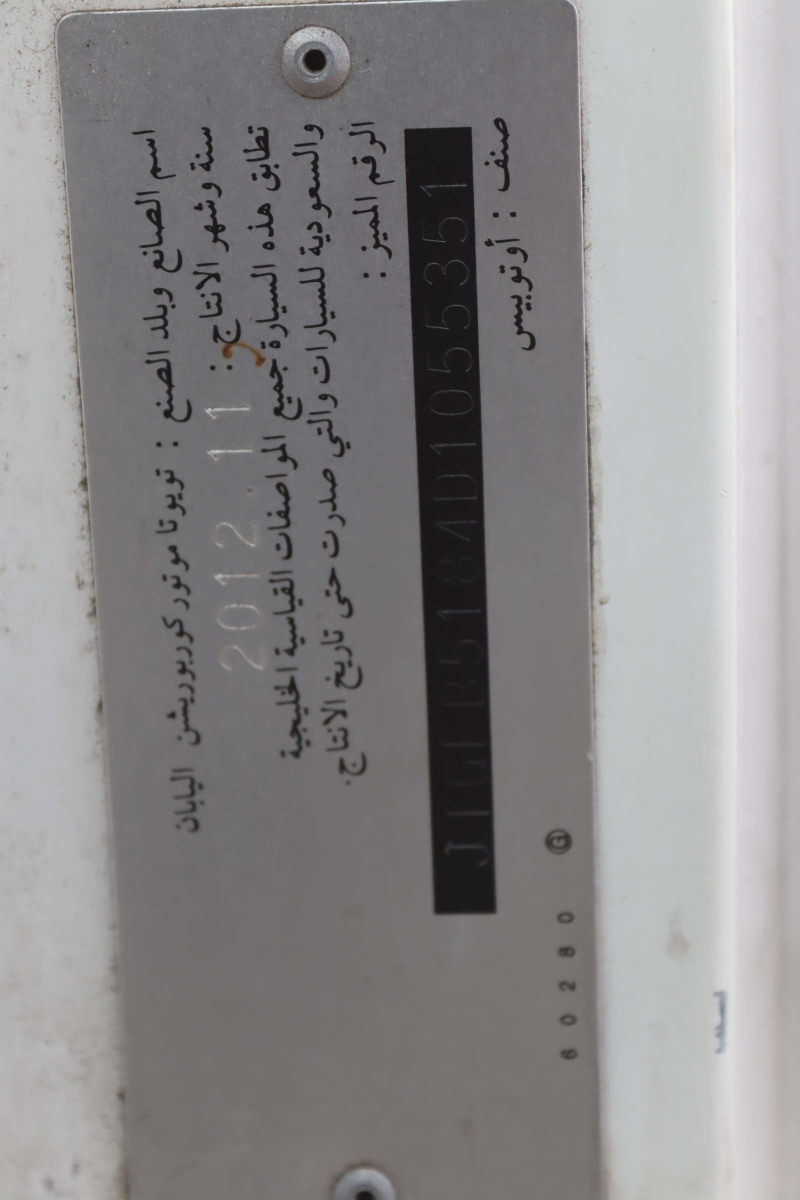 اسم الصانع وبلد الصنع : تويوتا موتور كوربوريشن اليابان
سنة وشهر الانتاج : 2012.11
تطابق هذه السيارة جميع المواصفات القياسية الخليجية
والسعودية للسيارات والتي صدرت حتى تاريخ الانتاج.
الرقم المميز :
JTGFB5184D1055351
صنف : أوتوبيس
60280 Ⓖ